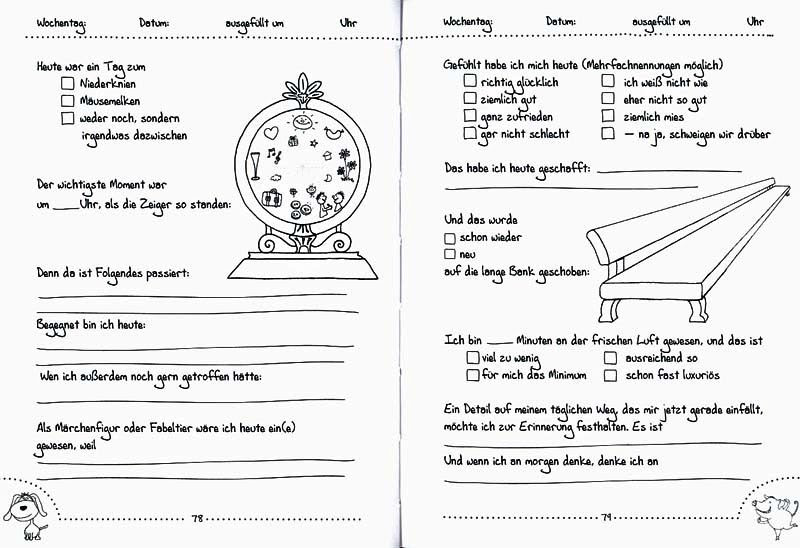 Wochentag: Datum: ausgefüllt um Uhr
Heute war ein Tag zum
Niederknien
Mäusemelken
weder noch, sondern
irgendwas dazwischen
Der wichtigste Moment war
um ____ Uhr, als die Zeiger so standen:
Denn da ist Folgendes passiert:
Begegnet bin ich heute:
Wen ich außerdem noch gern getroffen hätte:
Als Märchenfigur oder Fabeltier wäre ich heute ein(e)
gewesen, weil
78
Wochentag: Datum: ausgefüllt um Uhr
Gefühlt habe ich mich heute (Mehrfachnennungen möglich)
richtig glücklich ich weiß nicht wie
ziemlich gut eher nicht so gut
ganz zufrieden ziemlich mies
gar nicht schlecht – na ja, schweigen wir drüber
Das habe ich heute geschafft:
Und das wurde
schon wieder
neu
auf die lange Bank geschoben:
Ich bin ____ Minuten an der frischen Luft gewesen, und das ist
viel zu wenig ausreichend so
für mich das Minimum schon fast luxuriös
Ein Detail auf meinem täglichen Weg, das mir jetzt gerade einfällt,
möchte ich zur Erinnerung festhalten. Es ist
Und wenn ich an morgen denke, denke ich an
79